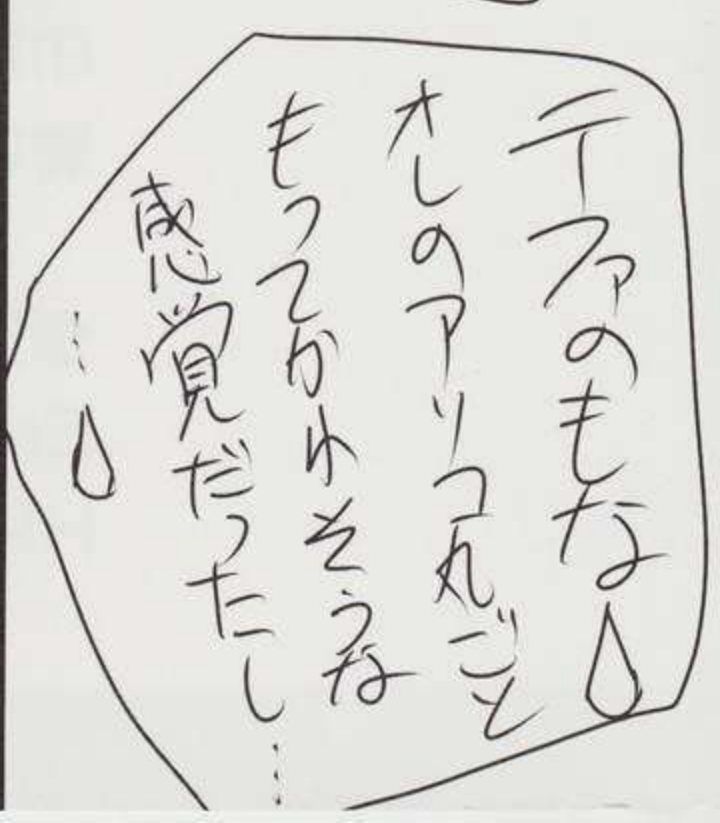 テファのもな
オレのアソコ丸ごと
もってかれそうな
感覚だったし……
…